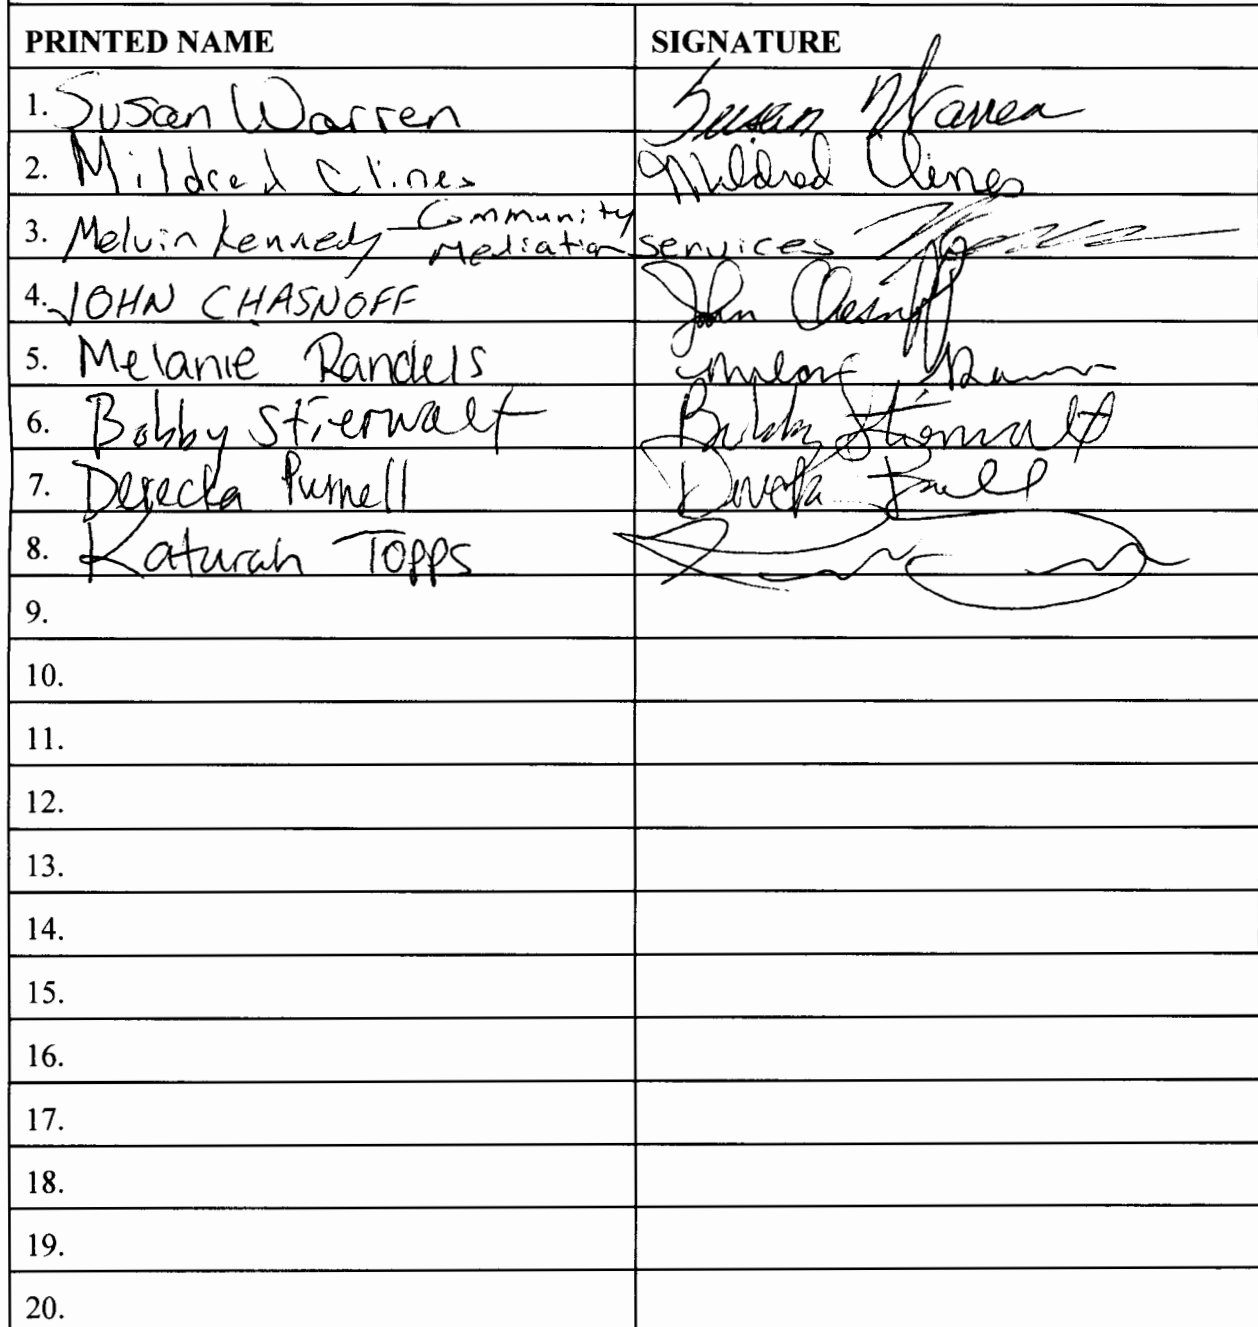 PRINTED NAME SIGNATURE
1. Susan Warren Susan Warren
2. Mildred Clines Mildred Clines
3. Melvin Kennedy - Community Mediation Services
4. JOHN CHASNOFF John Chasnoff
5. Melanie Randels
6. Bobby Stierwalt Bobby Stierwalt
7. Derecka Purnell Derecka Purnell
8. Katurah Topps
9.
10.
11.
12.
13.
14.
15.
16.
17.
18.
19.
20.